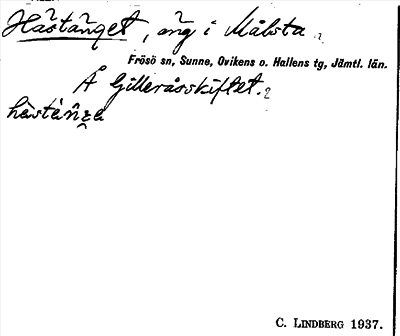 Hästänget, äng i Målsta.
Frösö sn, Sunne, Ovikens o. Hallens tg, Jämtl. län.
Å Gilleråsskiftet.
hèstèn̂ʒa
C. LINDBERG 1937.